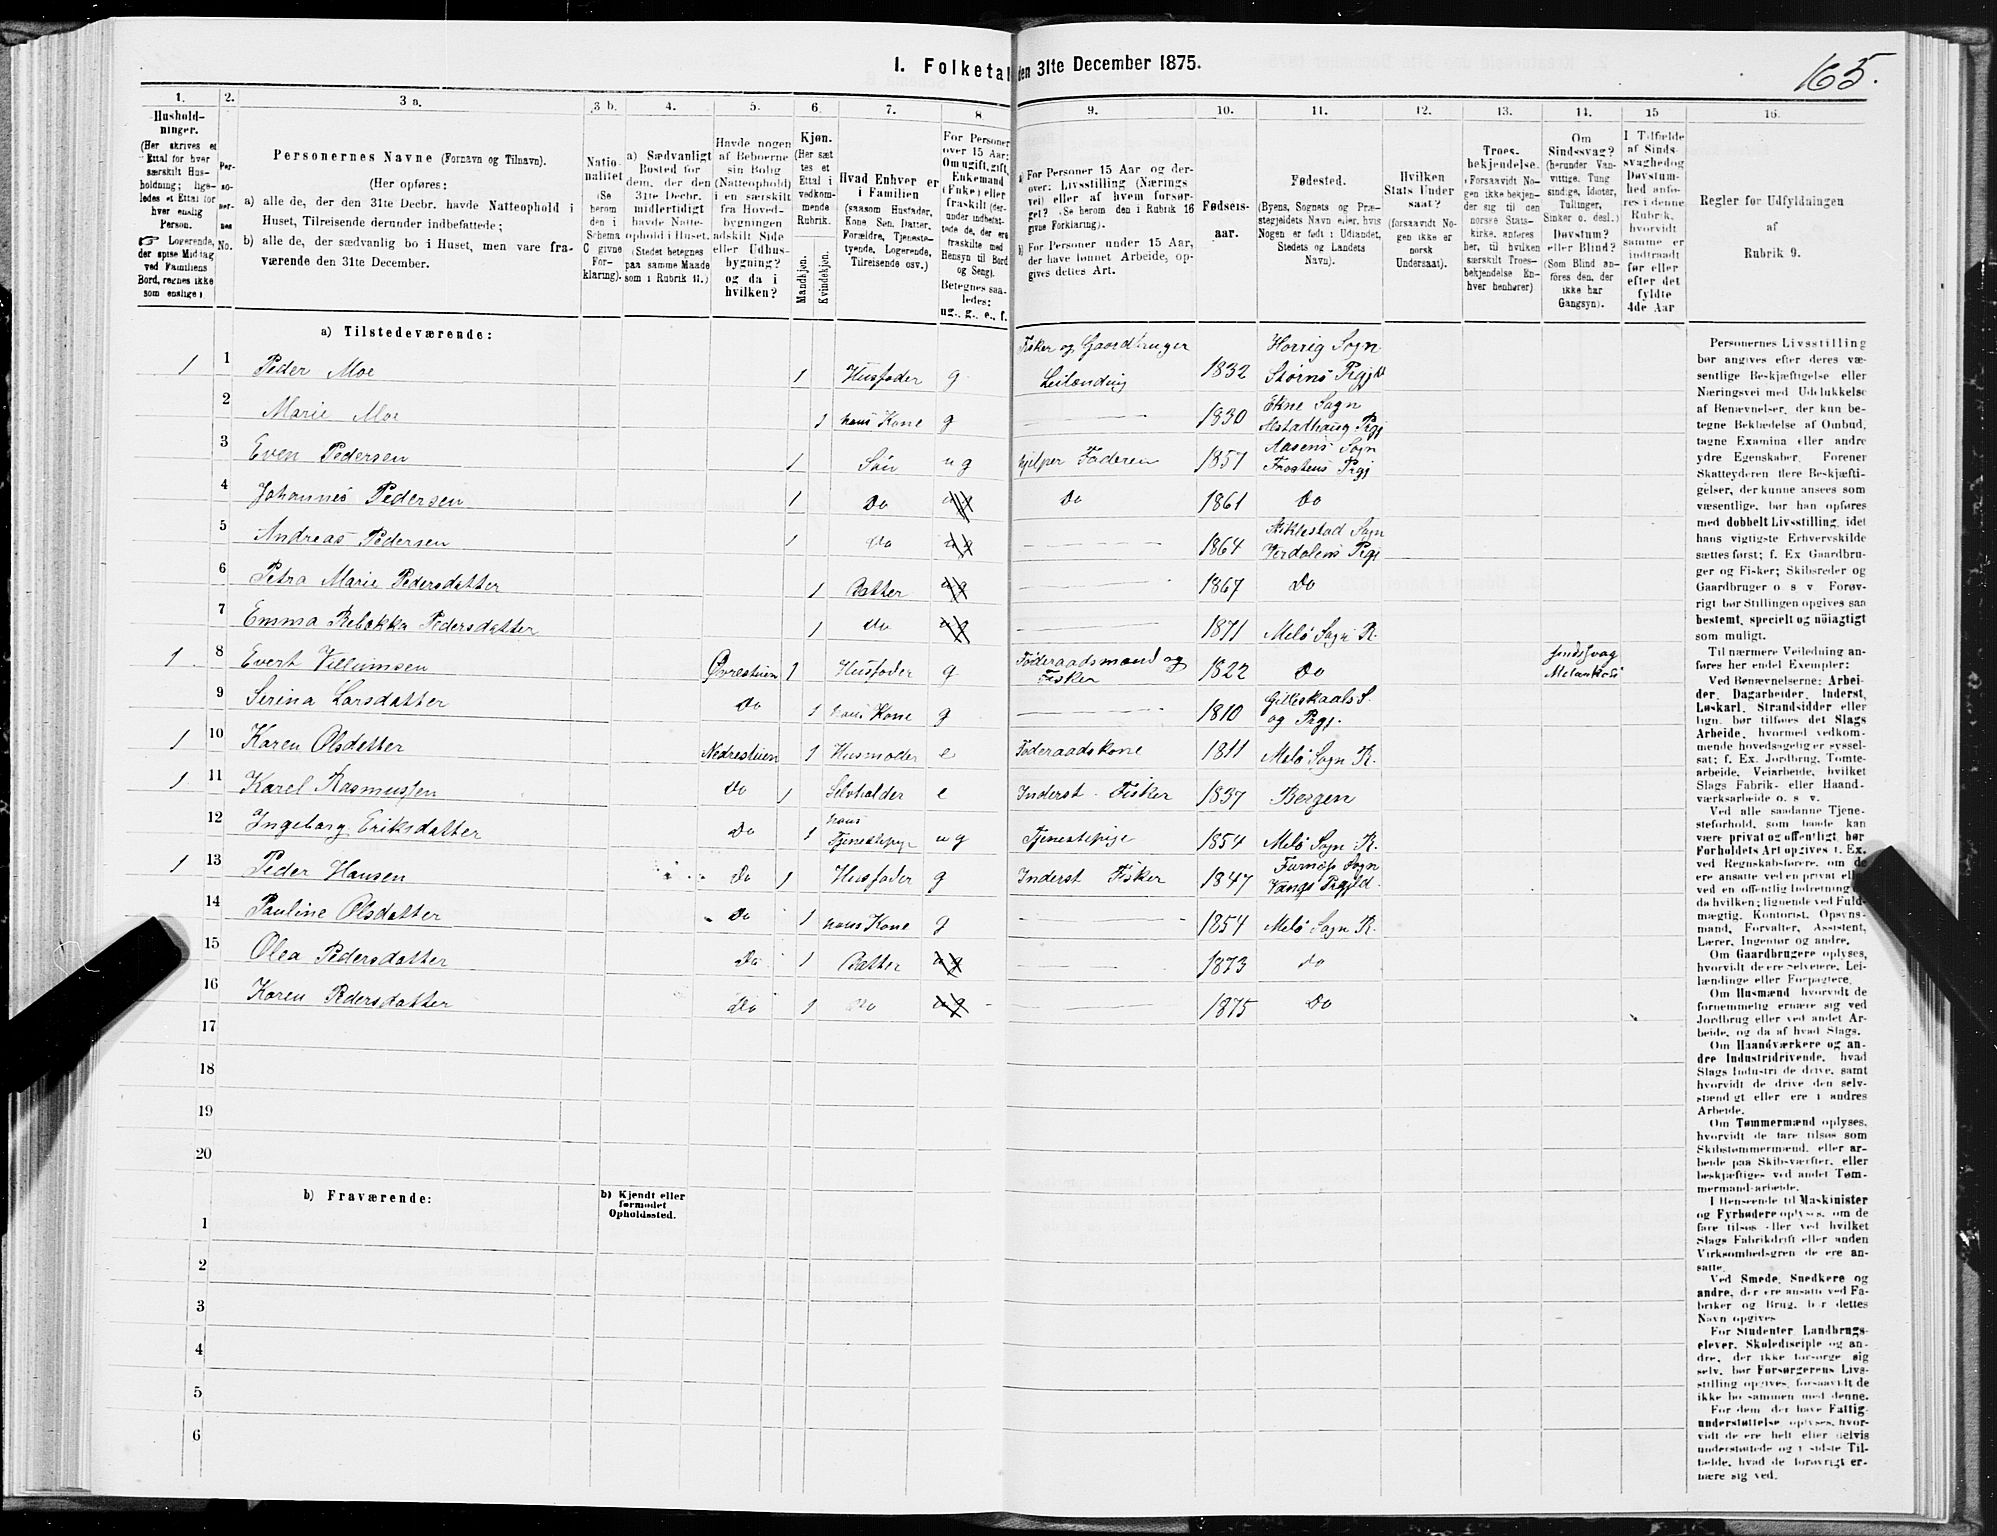 I. Folketal den 31te December 1875.
165.
1.
Husholdninger.
(Her skrives et Ettal for hver særskilt Husholdning; ligeledes et Ettal for hver enslig Person.
☞ Logerende, der spise Middag ved Familiens Bord, regnes ikke som enslige).
2.
Personernes No.
3 a.
Personernes Navne (Fornavn og Tilnavn).
(Her opføres:
a) alle de, der den 31te Decbr. havde Natteophold i Huset, Tilreisende derunder indbefattede;
b) alle de, der sædvanlig bo i Huset, men vare fraværende den 31te December.
3 b.
Nationalitet
(Se herom den i Schema C givne Forklaring).
4.
a) Sædvanligt Bosted for dem, der den 31te Decbr. midlertidigt havde Natteophold i Huset.
(Stedet betegnes paa samme Maade som i Rubrik 11.)
5.
Havde nogen af Beboerne sin Bolig (Natteophold) i en særskilt fra Hovedbygningen adskilt Side eller Udhusbygning? og da i hvilken?
6
Kjøn.
(Her sættes et Ettal i vedkommende Rubrik.
Mandkjøn.
Kvindekjøn.
7.
Hvad Enhver er i Familien
(saasom Husfader, Kone, Søn, Datter, Forældre, Tjenestetyende, Logerende, Tilreisende osv.)
8
For Personer over 15 Aar: Om ugift, gift, Enkemand (Enke) eller fraskilt (derunder indbefattede de, der ere fraskilte med Hensyn til Bord og Seng).
Betegnes saaledes: ug., g., e., f.
9.
a) For Personer 15 Aar og derover: Livsstilling (Næringsvei) eller af hvem forsørget? (Se herom den i Rubrik 16 givne Forklaring).
b) For Personer under 15 Aar, der have lønnet Arbeide, opgives dettes Art.
10.
Fødselsaar.
11.
Fødested.
(Byens, Sognets og Præstegjeldets Navn eller, hvis Nogen er født i Udlandet, Stedets og Landets Navn).
12.
Hvilken Stats Undersaat?
(forsaavidt Nogen ikke er norsk Undersaat).
13.
Troesbekjendelse.
(Forsaavidt Nogen ikke bekjender sig til den norske Statskirke, anføres her, til hvilken særskilt Troesbekjendelse Enhver henhører)
14.
Om Sindssvag?
(herunder Vanvittige, Tungsindige, Idioter, Tullinger, Sinker o. desl.)
Døvstum? eller Blind?
(Som Blind anføres den, der ikke har Gangsyn).
15
I Tilfælde af Sindssvaghed og Døvstumhed anføres i denne Rubrik, hvorvidt samme er indtraadt før eller efter det fyldte 4de Aar
16.
Regler for Udfyldningen
af
Rubrik 9.
a) Tilstedeværende:
1 1 Peder Moe 1 Husfader g Fisker og Gaardbruger Leilænding 1832 Horrig Sogn Størns Prgjld
2 Marie Moe 1 hans Kone g 1830 Ekne Sogn Alstadhaug Prgj
3 Even Pedersen 1 Søn ug hjelper Faderen 1857 Aasens Sogn Frostens Prgj
4 Johannes Pedersen 1 Do ug Do 1861 Do
5 Andreas Pedersen 1 Do ug 1864 Auklestad Sogn Verdalens Prgj
6 Petra Marie Pedersdatter 1 Datter ug 1867 Do
7 Emma Rebekka Pedersdatter 1 Do ug 1871 Melö Sogn R.
1 8 Evert Villumsen Øvrestuen 1 Husfader g Föderaadsmand og Fisker 1822 Do Sindssvag Melankoli
9 Serina Larsdatter Do 1 hans Kone g 1810 Gilleskaals S. og Prgj.
1 10 Karen Olsdatter Nedrestuen 1 Husmoder e Föderaadskone 1811 Melö Sogn R.
1 11 Karel Rasmussen Do 1 Selvholder e Inderst Fisker 1837 Bergen
12 Ingeborg Eriksdatter Do 1 hans Tjenestepige ug Tjenestepige 1854 Melö Sogn R.
1 13 Peder Hansen Do 1 Husfader g Inderst Fisker 1847 Furnæs Sogn Vangs Prgjld
14 Pauline Olsdatter Do 1 hans Kone g 1854 Melö Sogn R.
15 Olea Pedersdatter Do 1 Datter ug 1873 do
16 Karen Pedersdatter do 1 Do ug 1875 Do
17
18
19
20
b) Fraværende:
b) Kjendt eller formodet Opholdssted.
1
2
3
4
5
6
Personernes Livsstilling
bør angives efter deres væ-
sentlige Beskjæftigelse eller
Næringsvei med Udelukkelse
af Benævnelser, der kun be-
tegne Beklædelse af Ombud,
tagne Examina eller andre
ydre Egenskaber. Forener
Skatteyderen flere Beskjæfti-
gelser, der kunne ansees som
væsentlige, bør han opføres
med dobbelt Livsstilling, idet
hans vigtigste Erhvervskilde
sættes først; f. Ex Gaardbru-
ger og Fisker; Skibsreder og
Gaardbruger o s v Forøv-
rigt bør Stillingen opgives saa
bestemt, specielt og nöiagtigt
som muligt.
Til nærmere Veiledning an-
føres her endel Exempler:
Ved Benævnelserne: Arbei-
der, Dagarbeider, Inderst,
Løskarl, Strandsidder eller
lign. bør tilføres det Slags
Arbeide, hvormed vedkom-
mende hovedsagelig er syssel-
sat; f. Ex. Jordbrug, Tomte-
arbeide, Veiarbeide, hvilket
Slags Fabrik- eller Haand-
værksarbeide o. s. v.
Ved alle saadanne Tjene-
steforhold, som baade kan
være privat og offentligt, bør
Forholdets Art opgives, f. Ex.
ved Regnskabsførere, om de
ere ansatte ved en privat eller
ved en offentlig Indretning og
da hvilken; lignende ved Fuld-
mægtig, Kontorist, Opsyns-
mand, Forvalter, Assistent,
Lærer, Ingeniør og andre.
Om Gaardbrugere oplyses,
hvorvidt de ere Selveiere, Lei-
lændinge eller Forpagtere.
Om Husmænd hvorvidt de
fornemmelig ernære sig ved
Jordbrug eller ved andet Ar-
beide, og da af hvad Slags.
Om Haandværkere og an-
dre Industridrivende, hvad
Slags Industri de drive, samt
hvorvidt de drive den selv-
stændigt eller ere i andres
Arbeide.
Om Tømmermænd oplyses,
hvorvidt de fare tilsøs som
Skibstømmermænd, eller ar-
beide paa Skibsværfter, eller
beskjæftiges ved andet Tøm-
mermandsarbeide.
I Henseende til Maskinister
og Fyrbødere oplyses, om de
fare tilsøs eller ved hvilket
Slags Fabrikdrift eller anden
Virksomhedsgren de ere an-
satte.
Ved Smede, Snedkere og
andre, der ere ansatte ved Fa-
briker og Brug, bør dettes
Navn opgives
For Studenter, Landbrugs-
elever, Skoledisciple og an-
dre, der ikke forsørge sig
selv, bør Forsørgerens Livs-
stilling opgives, forsaavidt de
ikke bo sammen med denne.
For dem, der have Fattig-
understøttelse, oplyses, hvor-
vidt de ere helt eller delvis
understøttede og i sidste Til-
fælde, hvad de forøvrigt er-
nære sig ved.